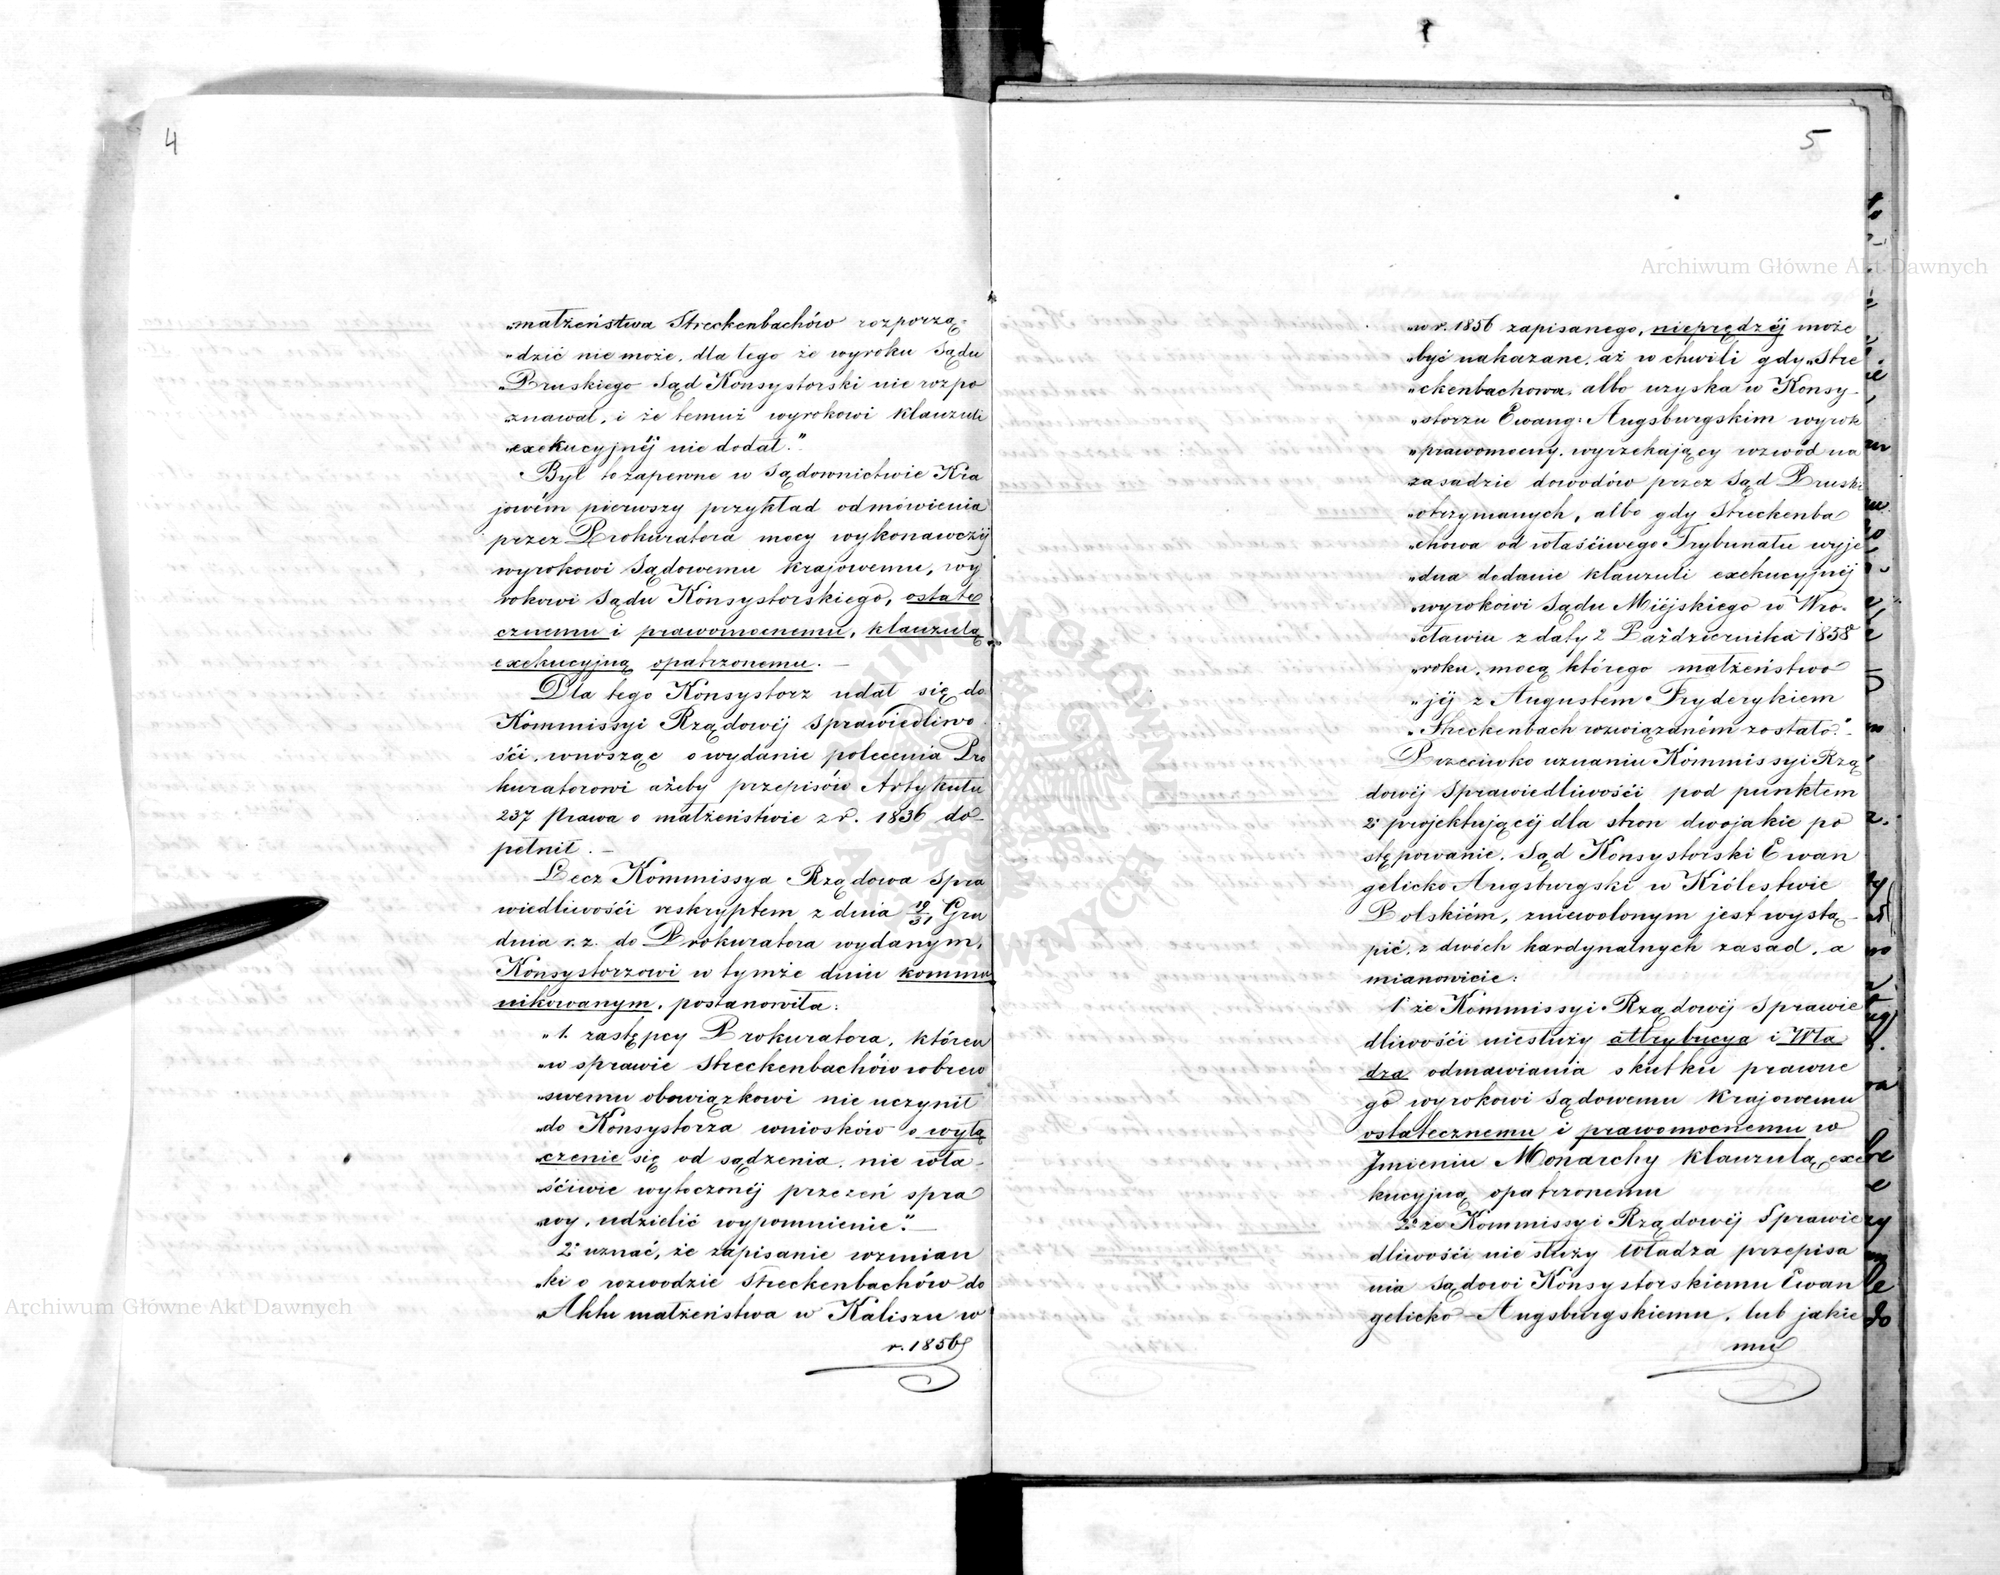 4
„małżeństwa Streckenbachów rozporzą„
„dzić nie może, dla tego że wyroku Sądu
„Pruskiego Sąd Konsystorski nie rozpo
„znawał, i że temuż wyrokowi klauzuli
„exekucyjnéj nie dodał."
Był to zapewne w Sądownictwie Kra
jowém pierwszy przykład odmówienia
przez Prokuratora mocy wykonawczéj
wyrokowi Sądowemu krajowemu, wy
rokowi Sądu Konsystorskiego, ostate
cznemu i prawomocnemu, klauzulą
exekucyjną opatrzonemu. —
Dla tego Konsystorz udał się do
Kommissyi Rządowéj Sprawiedliwo
ści, wnosząc o wydanie polecenia Pro
kuratorowi ażeby przepisów Artykułu
237 Prawa o małżeństwie z r. 1836 do-
pełnił. —
Lecz Kommissya Rządowa Spra
wiedliwości reskryptem z dnia 19/31 Gru
dnia r. z. do Prokuratora wydanym,
Konsystorzowi w tymże dniu kommu
nikowanym, postanowiła:
„1. zastępcy Prokuratora, któren
„w sprawie Streckenbachów wbrew
„swemu obowiązkowi nie uczynił
„do Konsystorza wniosków o wyłą
„czenie się od sądzenia, nie wła-
„ściwie wytoczonéj przezeń spra
„wy, udzielić wypomnienie." —
2° uznać, że zapisanie wzmian
„ki o rozwodzie Streckenbachów do
„Aktu małżeństwa w Kaliszu w
r. 1856
5
„w r. 1856 zapisanego, nieprędzéj może
„być nakazane, aż w chwili gdy „Stre
„ckenbachowa, albo uzyska w Konsy-
„storzu Ewang: Augsburgskim wyrok
„prawomocny, wyrzekający rozwód na
zasadzie dowodów przez Sąd Pruski
„otrzymanych, albo gdy Streckenba
„chowa od właściwego Trybunału wyje
„dna dodanie klauzuli exekucyjnéj
„wyrokowi Sądu Miéjskiego w Wro-
„cławiu z daty 2 Października 1858
„roku, mocą którego małżeństwo
„jéj z Augustem Fryderykiem
„Streckenbach rozwiązaném zostało." —
Przeciwko uznaniu Kommissyi Rzą
dowéj Sprawiedliwości pod punktem
2° projektującéj dla stron dwojakie po
stępowanie, Sąd Konsystorski Ewan
gelicko Augsburgski w Królestwie
Polskiém, zniewolonym jest wystą-
pić, z dwóch kardynalnych zasad, a
mianowicie:
1° że Kommissyi Rządowéj Sprawie
dliwości niesłuży attrybucya i Wła
dza odmawiania skutku prawne
go wyrokowi Sądowemu Krajowemu
ostatecznemu i prawomocnemu w
Imieniu Monarchy klauzulą, exe
kucyjną opatrzonemu
2° że Kommissyi Rządowéj Sprawie
dliwości nie służy Władza przepisa
nia Sądowi Konsystorskiemu Ewan
gelicko-Augsburgskiemu, lub jakie
mu
Archiwum Główne Akt Dawnych
Archiwum Główne Akt Dawnych